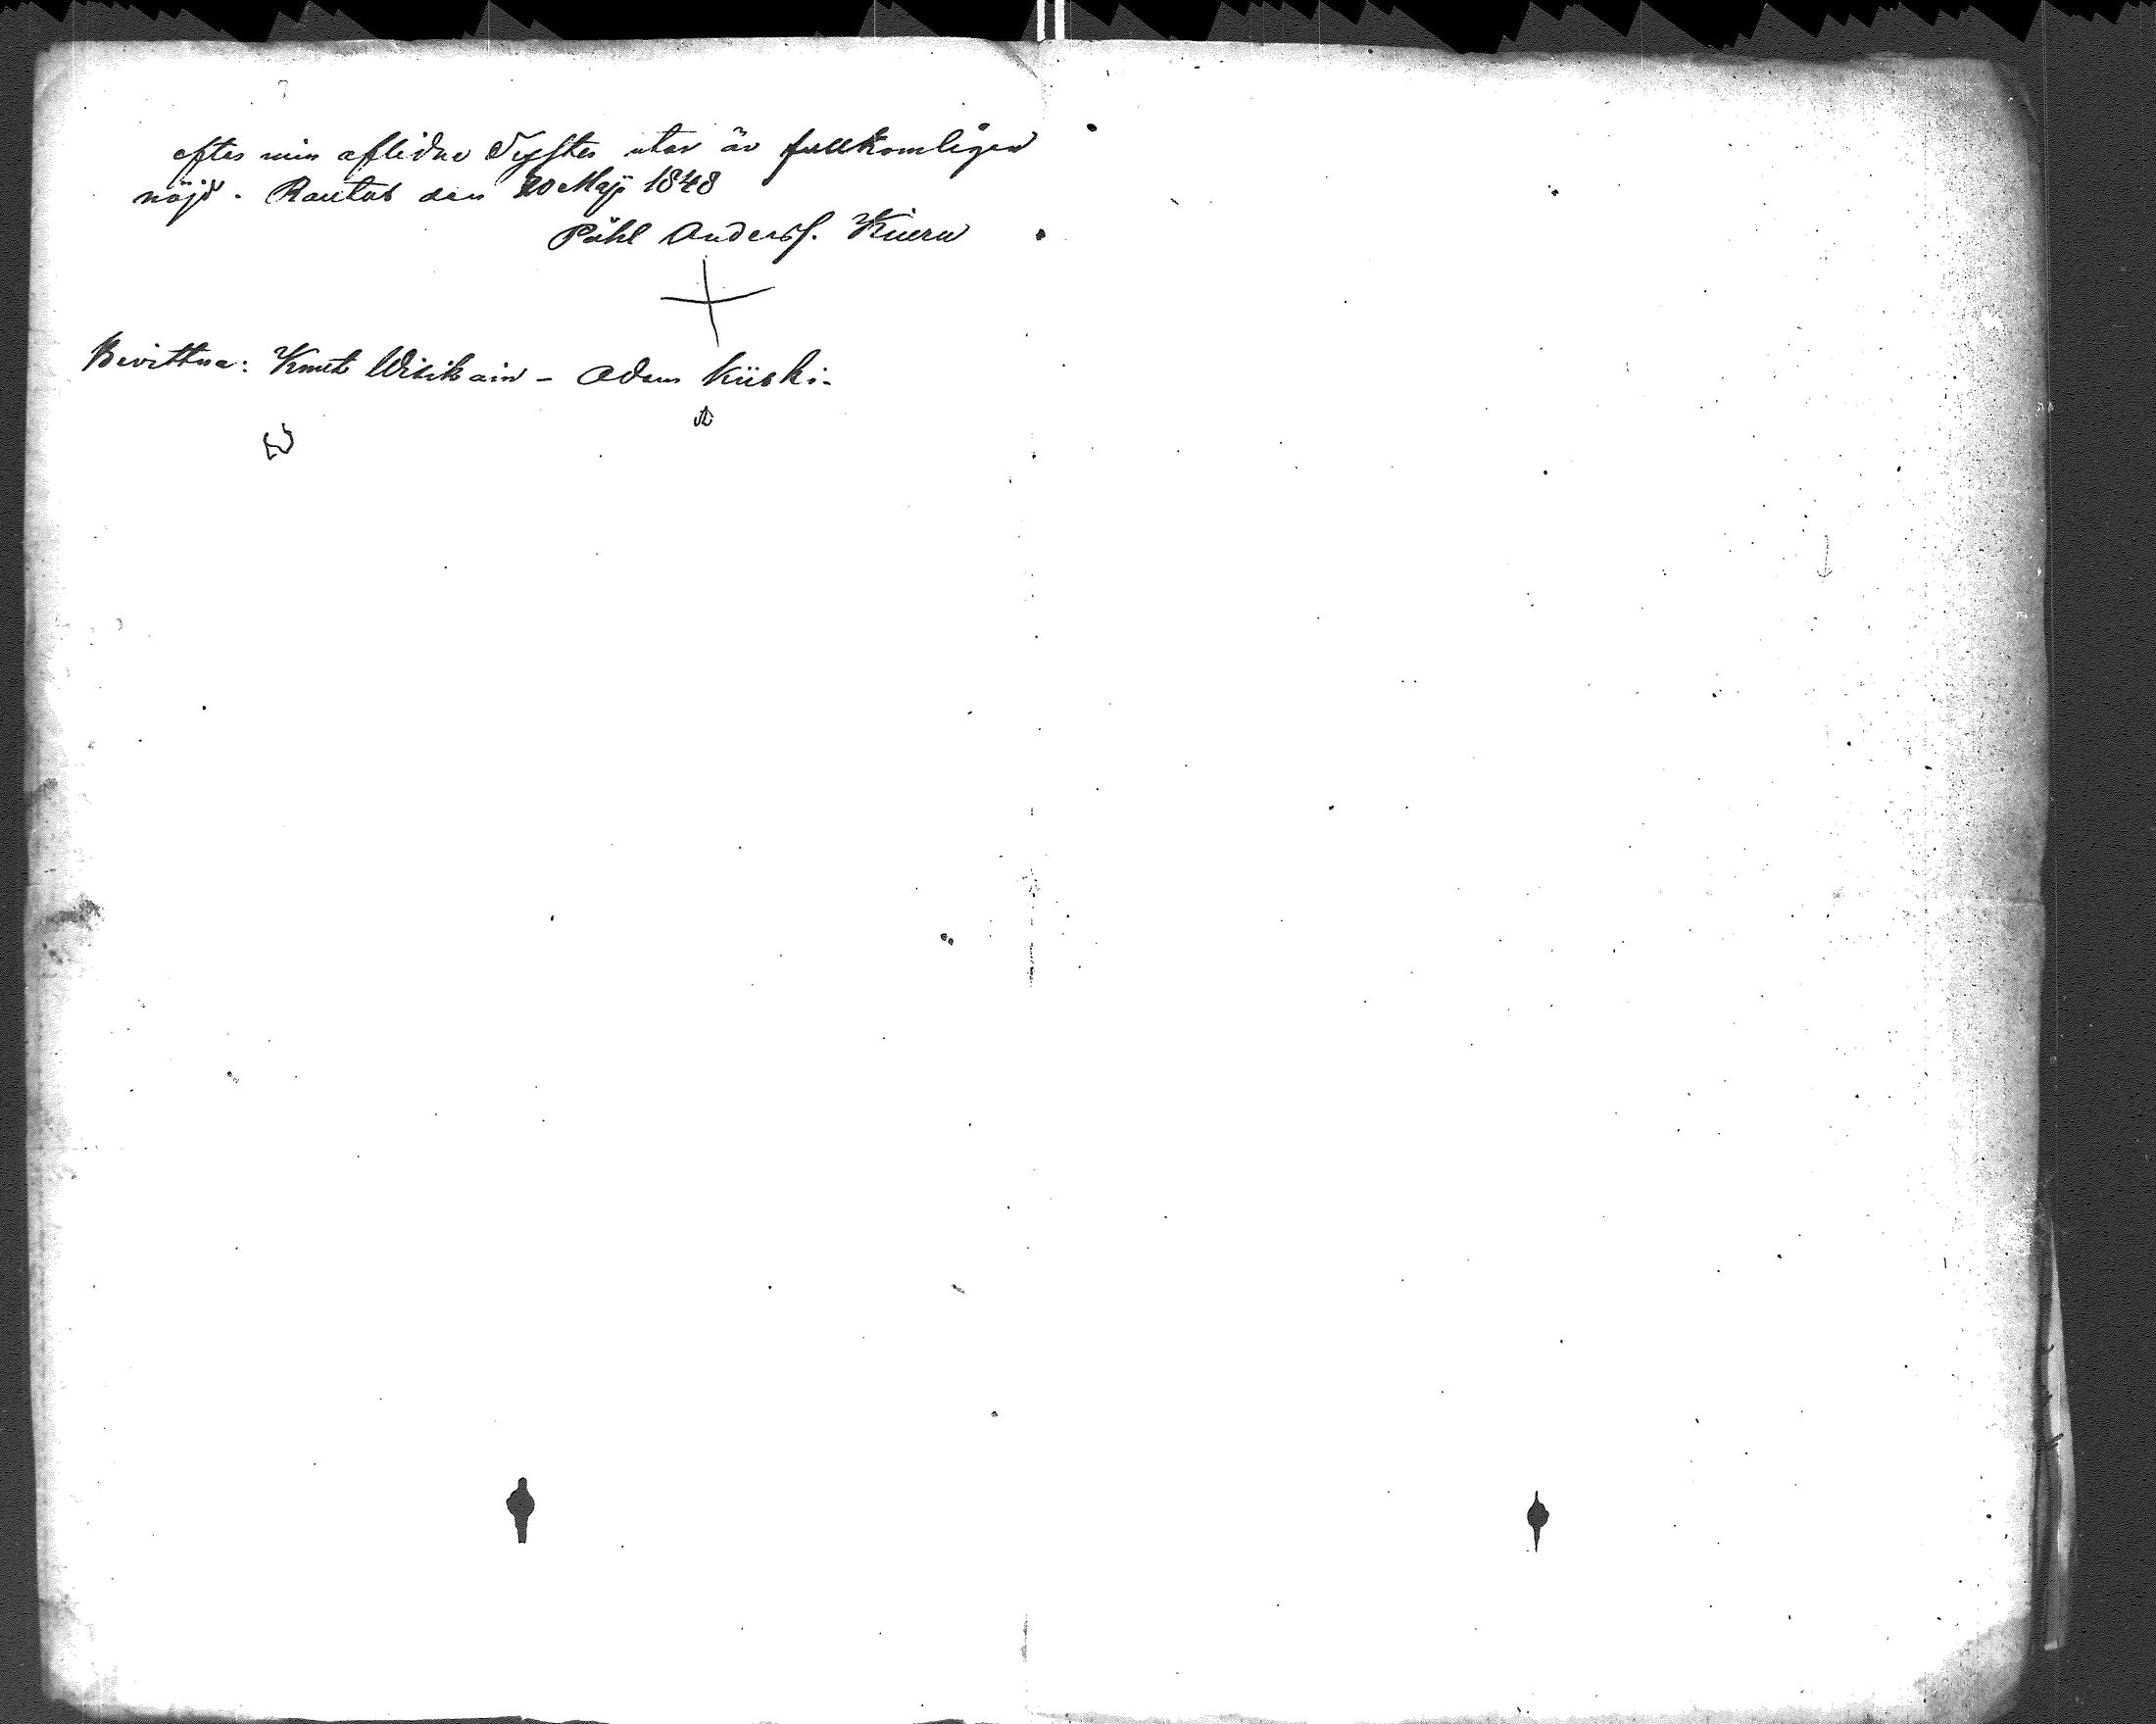 efter min aflidne Syster utan är fullkomligen
nöjd. Rautus den 20 Maji 1848
Påhl Anderss. Kiuru
Bevittna: Knut Wisikain - Adam Kiiski.